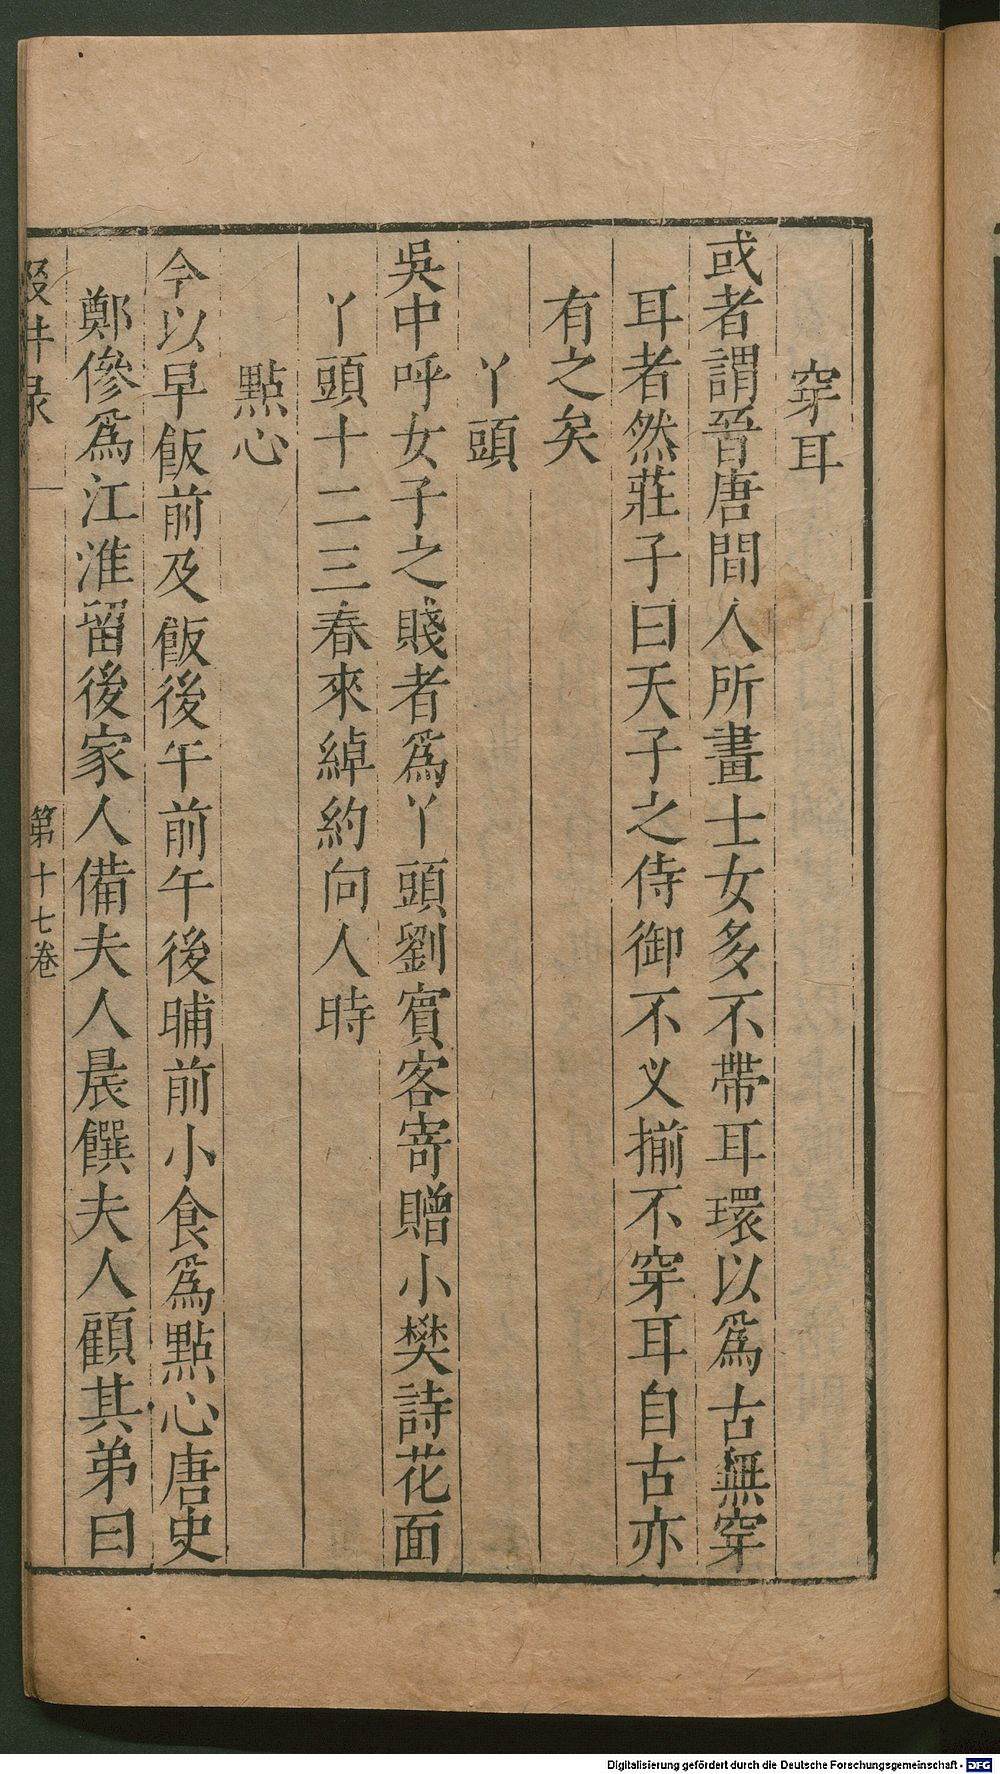 穿耳
或者謂晉唐間人所畫士女多不帶耳環以爲古無穿
耳者然莊子曰天子之侍御不义揃不穿耳自古亦
有之矣
丫頭
吳中呼女子之賤者爲丫頭劉賓客寄贈小樊詩花面
丫頭十二三春來綽約向人時
點心
今以早飯前及飯後午前午後晡前小食爲點心唐史
鄭傪爲江淮留後家人備夫人晨饌夫人顧其弟曰
第十七卷
Digitalisierung gefördert durch die Deutsche Forschungsgemeinschaft - DFG